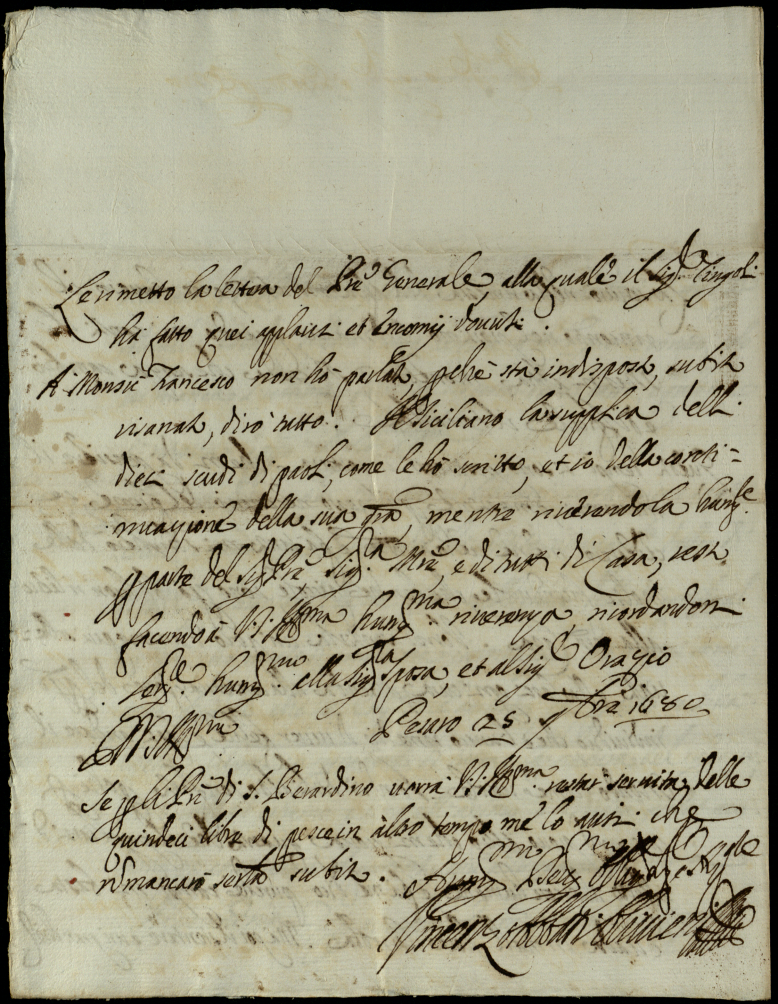 Le rimetto la lettera del Pre Generale, alla quale il Sigr Cingoli
ha fatto quei applausi et Encomij dovuti.
A Monsù Francesco non hò parlato, perche stà indisposto, subito
risanato, dirò tutto. Il Siciliano la supplica delli
dieci scudi di paoli, come le hò scritto, et io della conti-
nuazione della sua gra, mentre riverendola humte
p parte del Sigr Pre, Sigra Mre, e di tutti di Casa, resto
facendo à V.S. Illma humma riverenza, ricordandomi
humo alla Sigra Sposa, et al Sigr Orazio
D V.S. Illma Pesaro 25 7bre 1680
Se p li Pri di S. Berardino vorrà V.S. Illma restar servita delle
quindeci libre di pesce in altro tempo me lo avisi che
nō mancarò servirla subito.
Hummo Devmo
Vincenzo